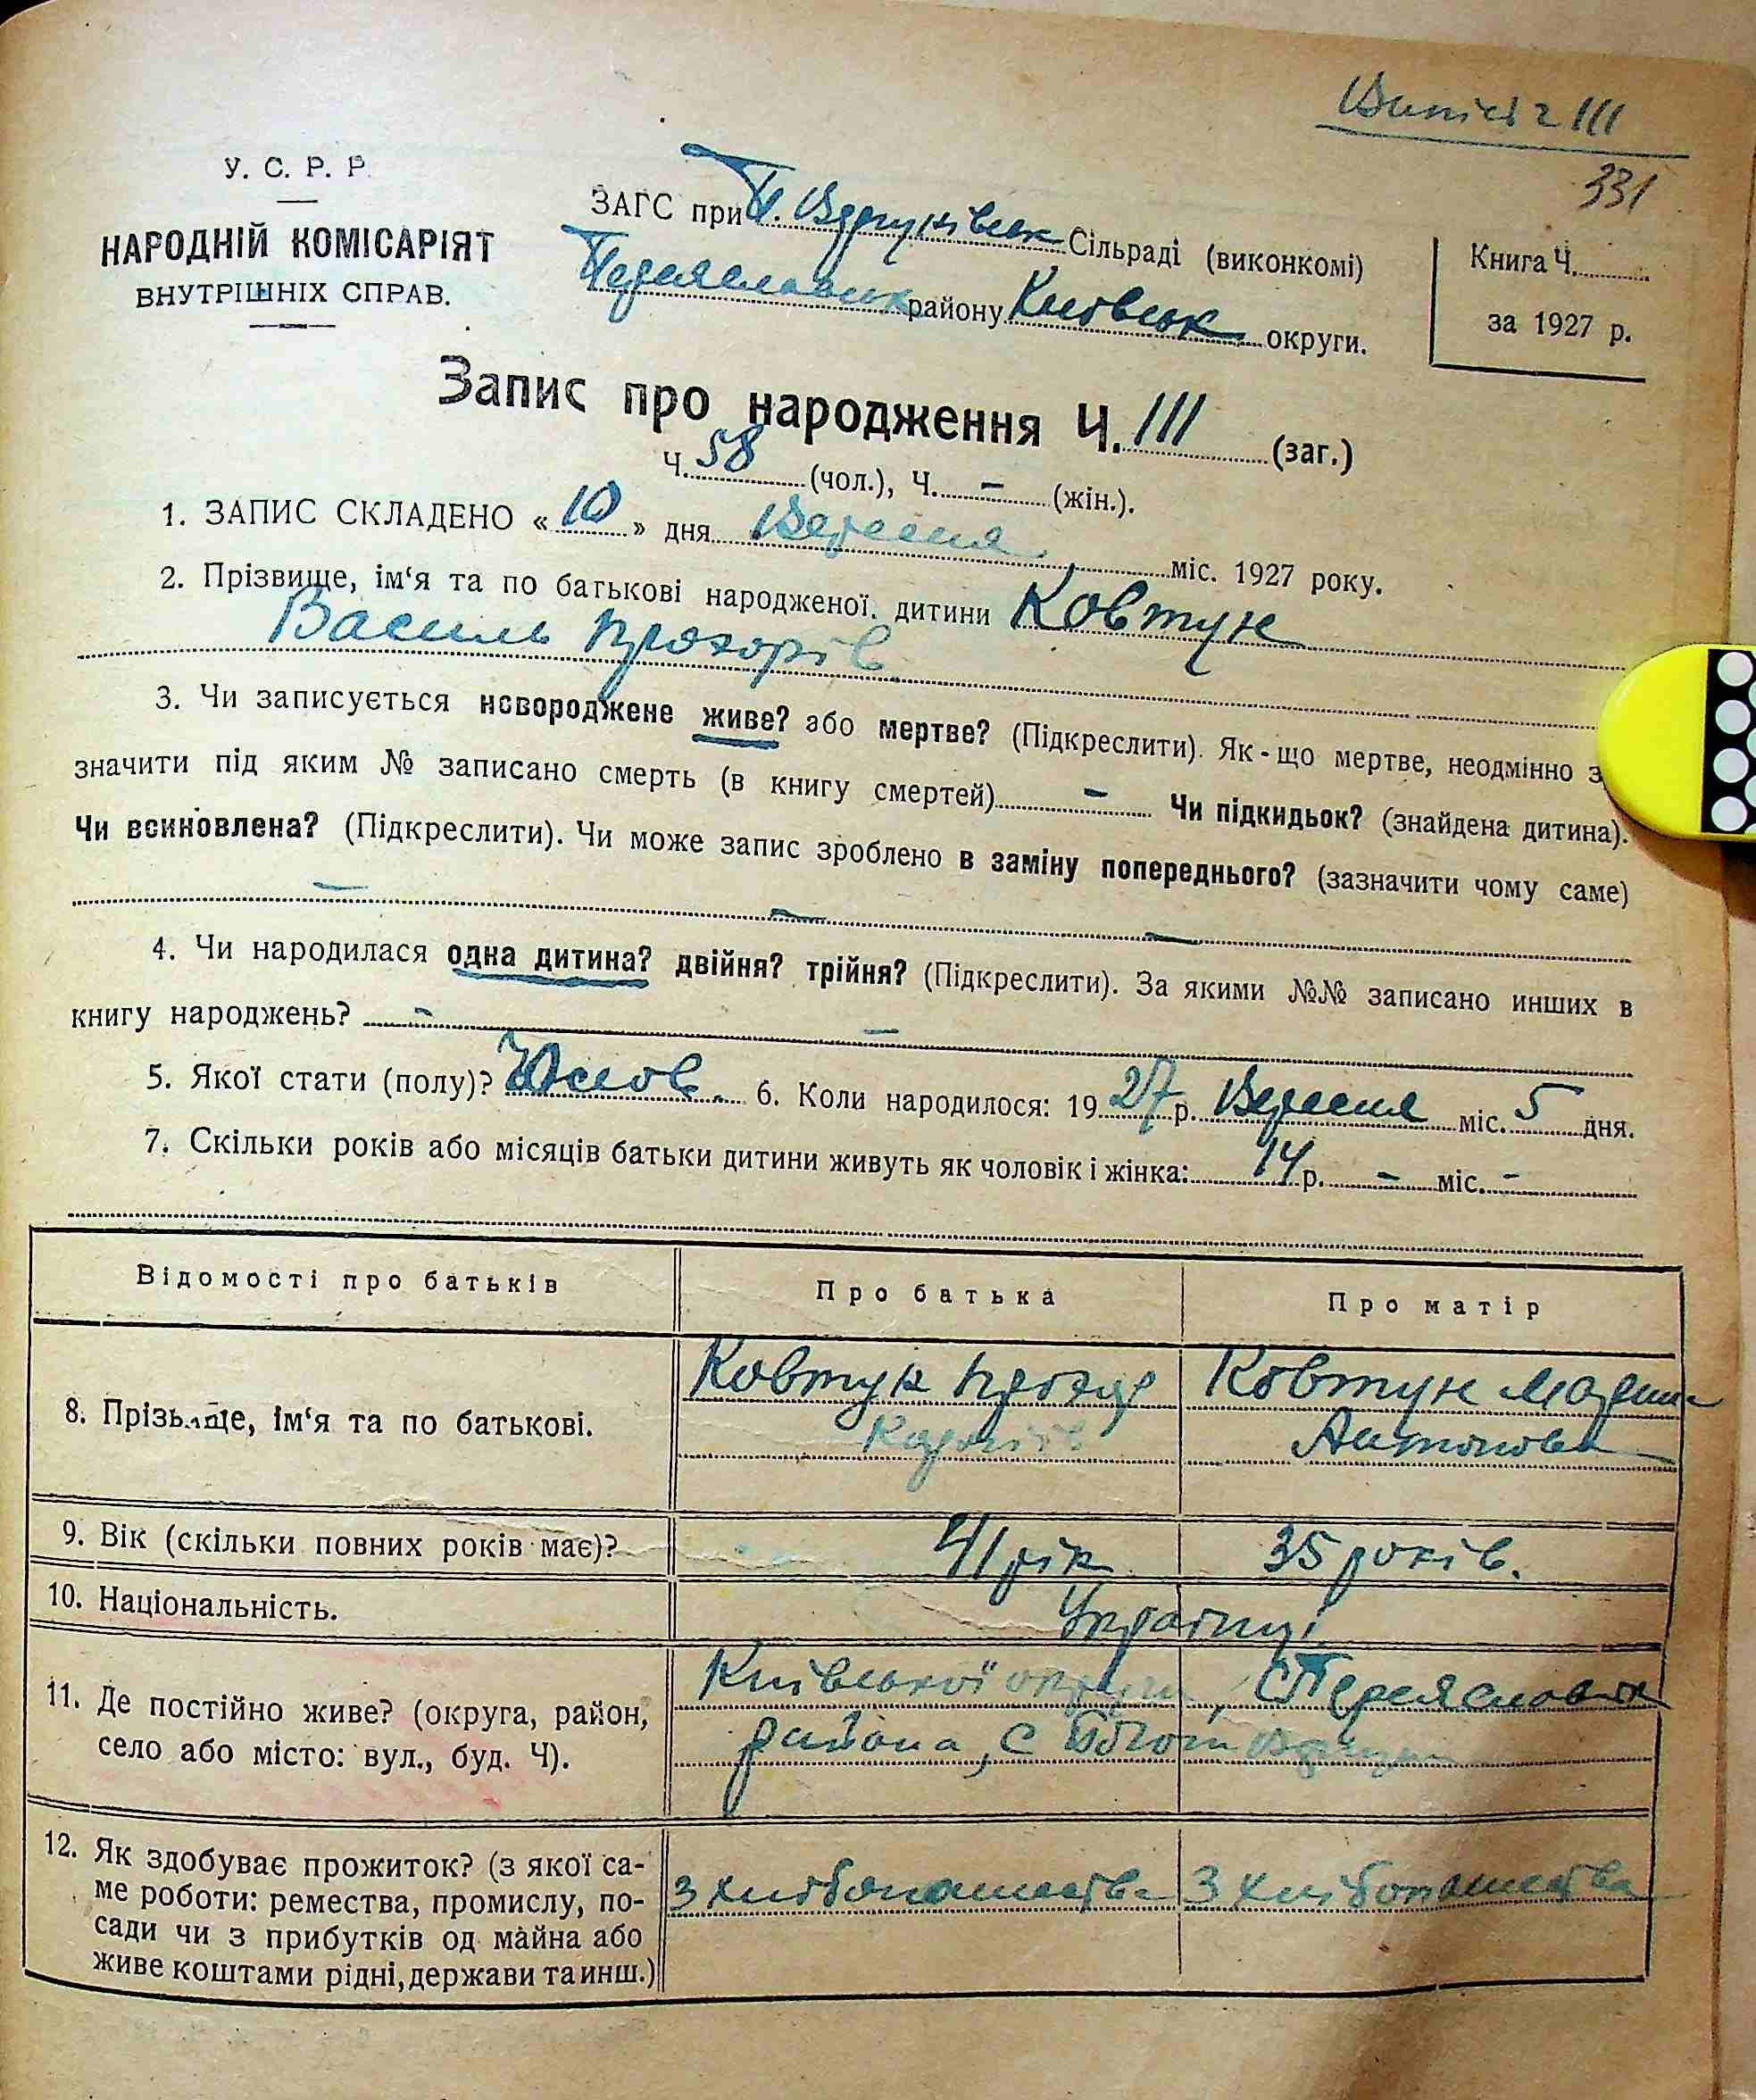 Випись 2 111
331
У. С. Р. Р.
НАРОДНІЙ КОМІСАРІЯТ
ВНУТРІШНІХ СПРАВ.
ЗАГС при П. Сільраді (виконкомі)
Переяславськ району Київськ округи.
Книга Ч.
за 1927 р.
Запис про народження Ч. 111 (заг.)
Ч. 58 (чол.), Ч. – (жін.).
1. ЗАПИС СКЛАДЕНО « 10 » дня Вересня міс. 1927 року.
2. Прізвище, ім‘я та по батькові народженої. дитини Ковтун
Василь Прохорів
3. Чи записується новороджене живе? або мертве? (Підкреслити). Як-що мертве, неодмінно за-
значити під яким № записано смерть (в книгу смертей) – Чи підкидьок? (знайдена дитина).
Чи всиновлена? (Підкреслити). Чи може запис зроблено в заміну попереднього? (зазначити чому саме)
– – –
4. Чи народилася одна дитина? двійня? трійня? (Підкреслити). За якими №№ записано инших в
книгу народжень? – –
5. Якої стати (полу)? Чолов. 6. Коли народилося: 1927 р. Вересня міс. 5 дня.
7. Скільки років або місяців батьки дитини живуть як чоловік і жінка: 14 р. – міс. –
Відомості про батьків Про батька Про матір
8. Прізвище, ім‘я та по батькові. Ковтун Прохор Ковтун Марина
Антонова
9. Вік (скільки повних років має)? 41 рік 35 років.
10. Національність. Українці
11. Де постійно живе? (округа, район,
село або місто: вул., буд. Ч).
Київської округи, Переяславськ
района, с
12. Як здобуває прожиток? (з якої са-
ме роботи: ремества, промислу, по-
сади чи з прибутків од майна або
живе коштами рідні, держави та инш.)
З хлібопашества З хлібопашества